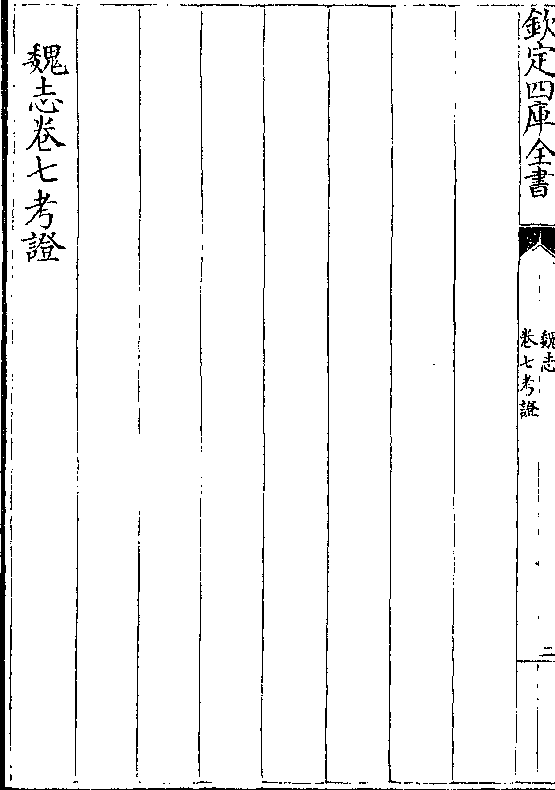 欽定四庫全書
魏志
卷七考證
二
魏志卷七考證